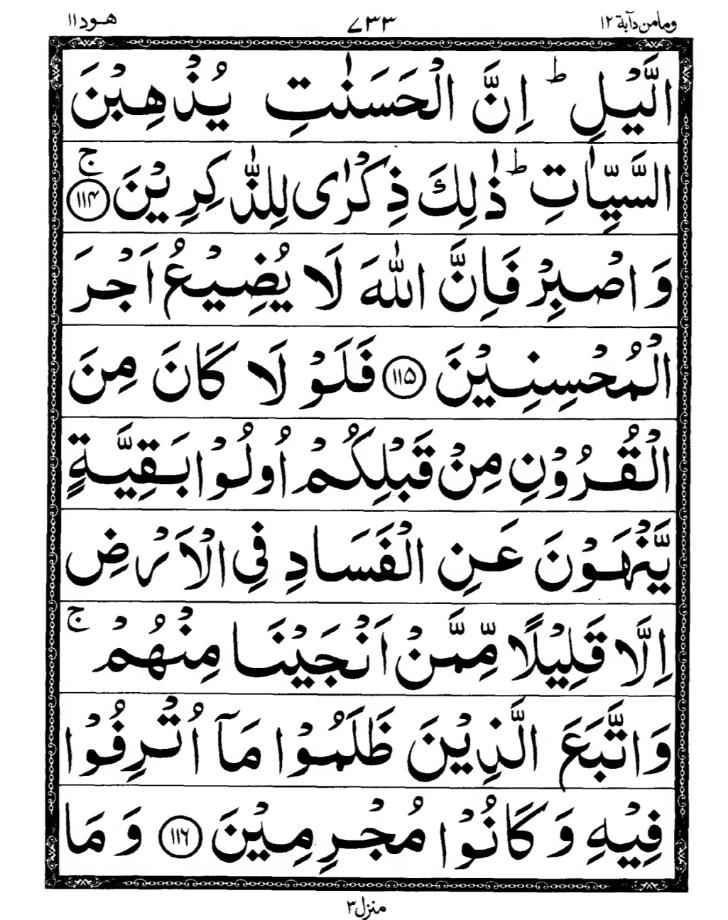 ومامن دآبة ١٢ ٧٣٣ هود ١١
الَّيْلِ ؕ اِنَّ الْحَسَنٰتِ يُذْهِبْنَ
السَّيِّاٰتِ ؕ ذٰلِكَ ذِكْرٰى لِلذّٰكِرِيْنَ ۚ ﴿۱۱۴﴾
وَاصْبِرْ فَاِنَّ اللّٰهَ لَا يُضِيْعُ اَجْرَ
الْمُحْسِنِيْنَ ﴿۱۱۵﴾ فَلَوْ لَا كَانَ مِنَ
الْقُرُوْنِ مِنْ قَبْلِكُمْ اُولُوْا بَقِيَّةٍ
يَّنْهَوْنَ عَنِ الْفَسَادِ فِي الْاَرْضِ
اِلَّا قَلِيْلًا مِّمَّنْ اَنْجَيْنَا مِنْهُمْ ۚ
وَاتَّبَعَ الَّذِيْنَ ظَلَمُوْا مَاۤ اُتْرِفُوْا
فِيْهِ وَكَانُوْا مُجْرِمِيْنَ ﴿۱۱۶﴾ وَمَا
منزل ٣